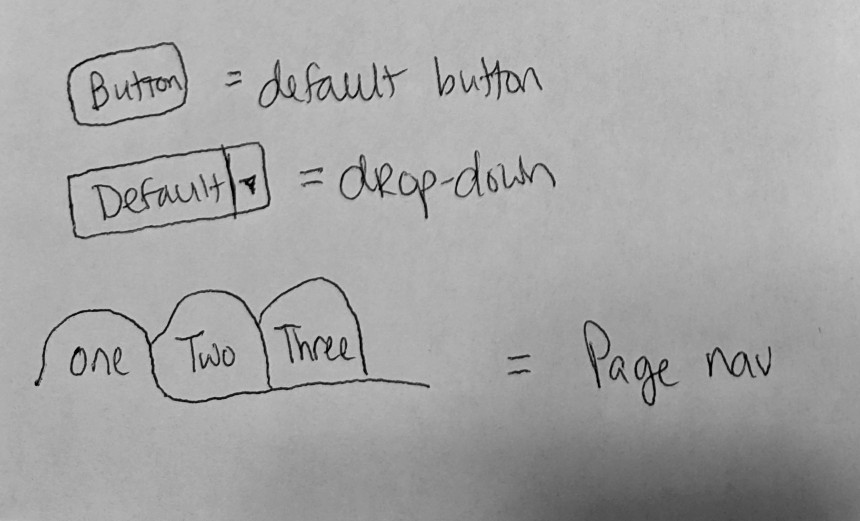 Button = default button
Default = drop-down
One Two Three = Page nav